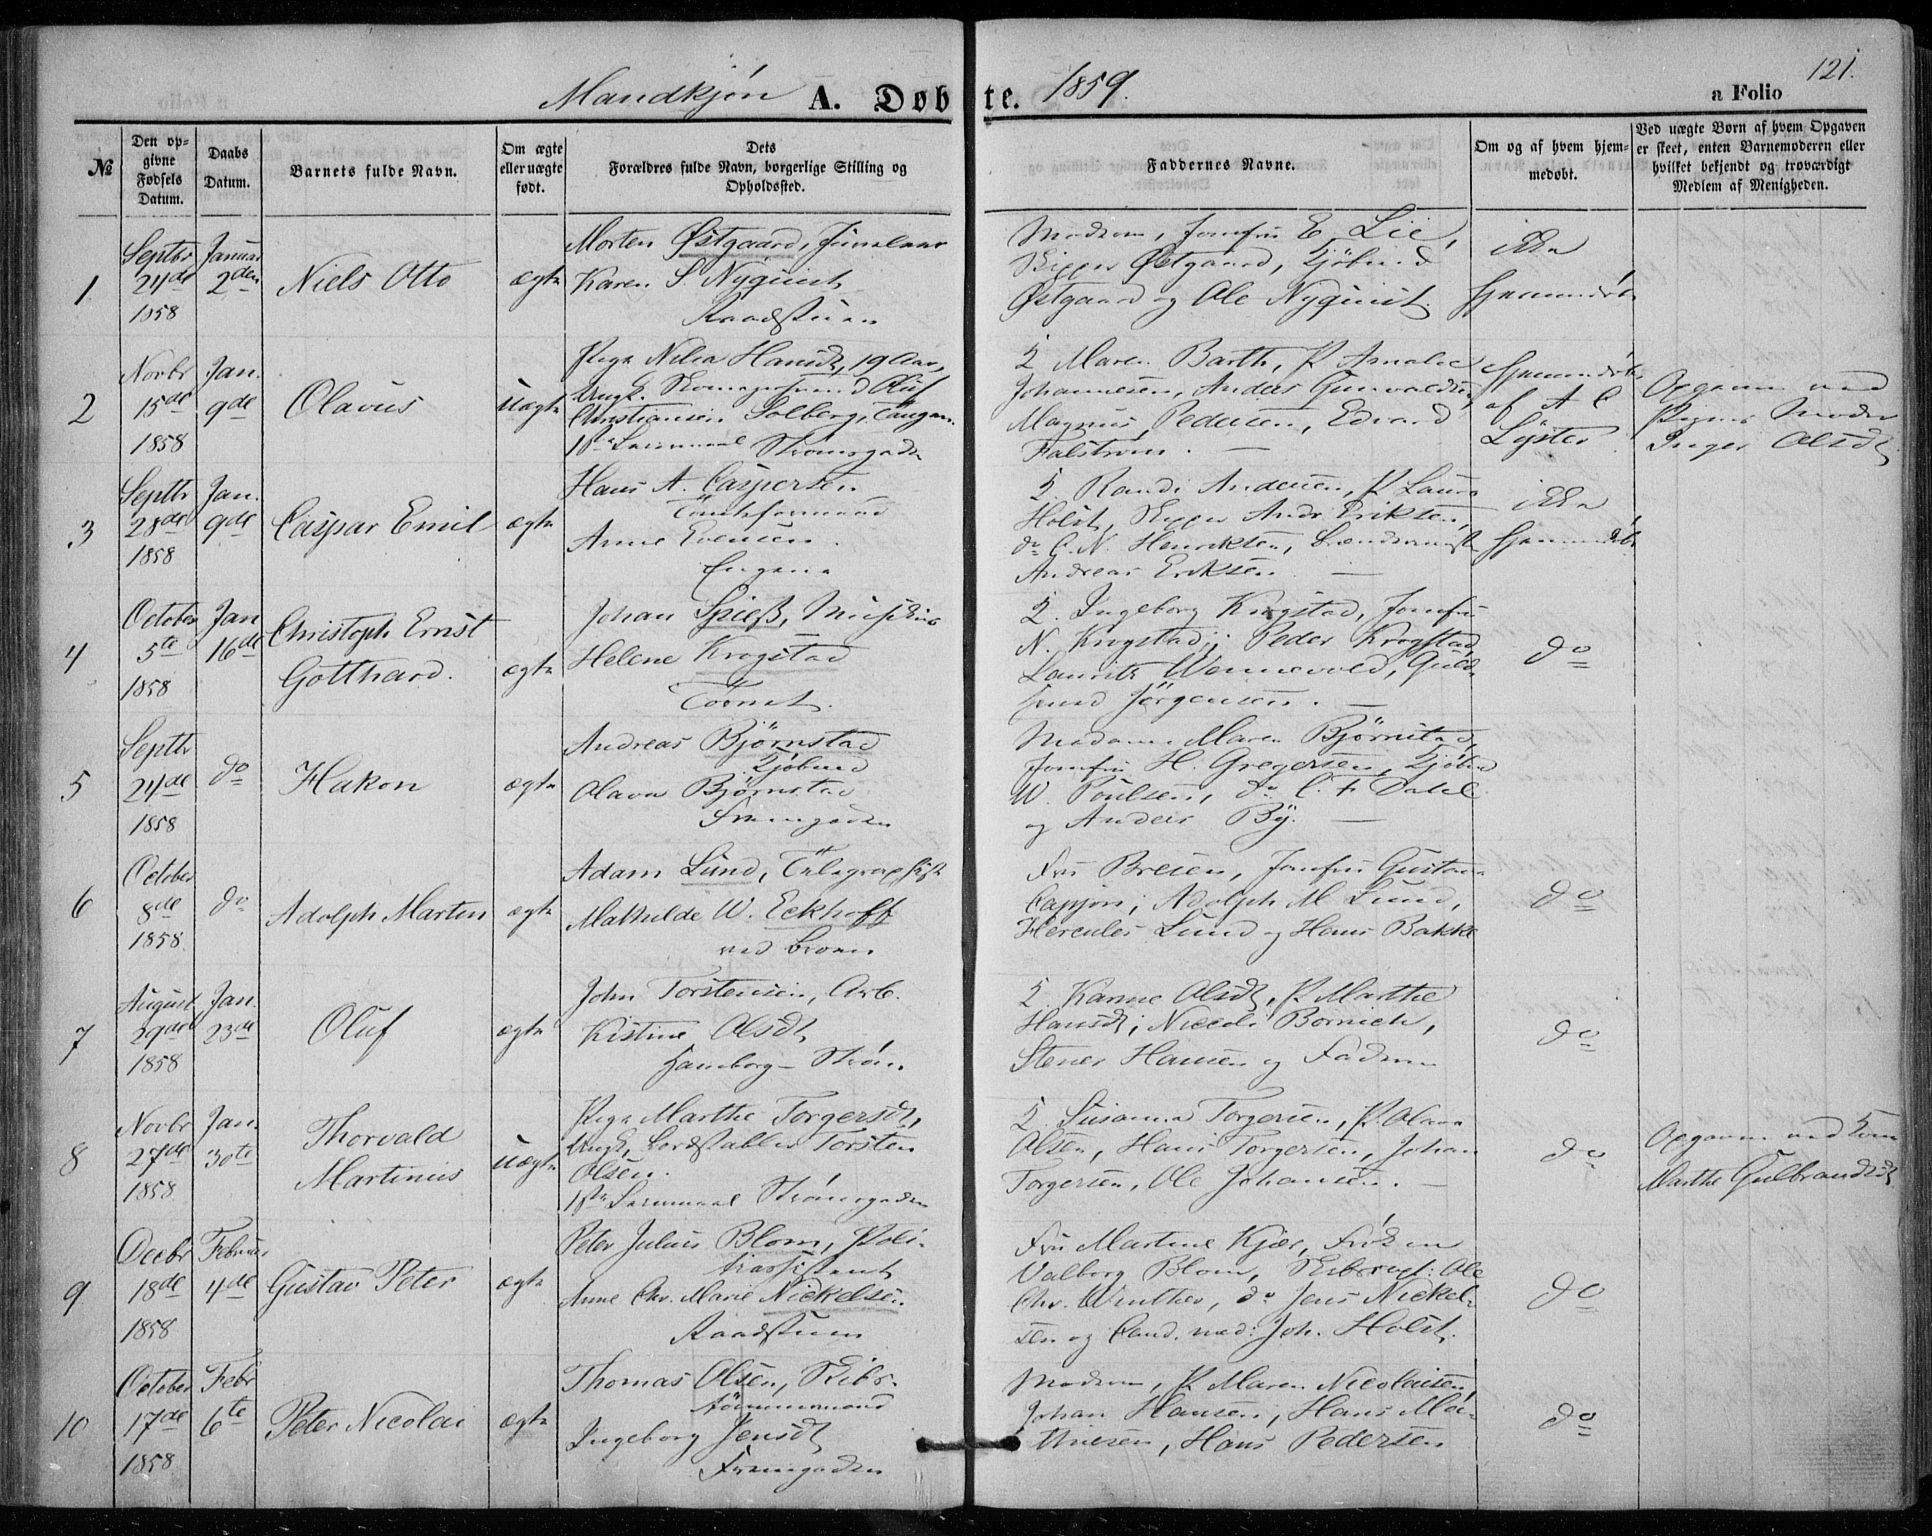 Mandkjøn A. Døbte. 1859.
121.
a Folio
№
Den op-
givne
Fødsels
Datum.
Daabs
Datum.
Barnets fulde Navn.
Om ægte
eller uægte
født.
Dets
Forældres fulde Navn, borgerlige Stilling og
Opholdssted.
Faddernes Navne.
Om og af hvem hjem-
medøbt.
Ved uægte Børn af hvem Opgaven
er skeet, enten Barnemoderen eller
hvilket bekjendt og troværdigt
Medlem af Menigheden.
1
Septbr
24de
1858
Januar
2den
Niels Otto
ægte
Morten Østgaard,
Karen S Nyquist
Raadstuen
Modren, Jomfru E. Lie,
Skipper Østgaard, Kjøbmd
Østgaard og Ole Nyquist.
ikke
hjemmedøbt
2
Novbr
15de
1858
Jan.
9de
Olavus
uægte
Pige Nilia Hansdt, 19 Aar,
Ungk. Oluf
Christiansen Solberg, Tangen.
1ste Leiermaal Strømsgaden
K Maren Barth, P Amalie
Johannesen, Anders Gunvaldsen,
Magnus Pedersen, Edvard
Falstrøm. —
Hjemmedøbt
af A C
Lyster
Opgaven ved
Pigens Moder
Inger Olsdt
3
Septbr
28de
1858
Jan.
9de
Caspar Emil
ægte
Hans A. Caspersen
Anne Evensen.
Engene
K. Randi Andersen, P Laura
Holst, Skipper Andr Eriksen,
do C. N. Henriksen,
Andreas Eriksen —
ikke
hjemmedøbt
4
October
5te
1858
Jan
16de
Christoph Ernst
Gotthard.
ægte
Johan Spieß, Musikus
Helene Krogstad
Torvet.
K. Ingeborg Krogstad, Jomfru
N. Krogstad; Peder Krogstad,
Laurits Wennevold, Guld-
smed Jørgensen. —
do
5
Septbr
24de
1858
do
Hakon
ægte
Andreas Bjørnstad
Kjøbmd
Olava Bjørnstad
Madame Maren Bjørnstad,
Jomfru H. Gregersen, Kjøbm
W. Poulsen, do C. F. Dahl
og Anders By. —
6
October
8de
1858.
do
Adolph Martin
ægte
Adam Lund, Telegraphist
Mathilde W. Eckhoff
ved Broen
Fru Bresen, Jomfru Gustava
Cappjon; Adolph M Lund,
Hercules Lund og Hans Bakke
do
7
August
29de
1858
Jan.
23de
Oluf
ægte
John Torstensen, Arb.
Kistine Olsdt
Hamborg – Strøm.
K. Karine Olsdt, P. Marthe
Hansdt; Nicolai Bornich,
Stener Hansen og Faderen
do
8
Novbr
27de
1858.
Jan.
30te
Thorvald
Martinius
uægte
Pige Marthe Torgersdt,
Ungk, Bordstabler Torsten
Olsen.
1ste Leiermaal Strømsgaden
K Susanna Torgersen, P. Olava
Olsen, Hans Torgersen, Johan
Torgersen, Ole Johansen. —
do
Opgaven ved Kone
Marthe Gulbrandsdt
9
Decbr
18de
1858
Februar
4de
Gustav Peter
ægte
Peter Julius Blom, Poli-
tiassistent
Anne Chr. Marie Nickelsen.
Raadstuen
Fru Martine Kjær, Frøken
Valborg Blom, Ole
Chr. Winther, do Jens Nickel-
sen og Cand. med: Joh. Holst.
do
10
October
17de
1858
Febr
6te
Peter Nicolai
ægte
Thomas Olsen, Skibs-
tømmermand
Ingeborg Jensdt
Modren, P. Maren Nicolaisen,
Johan Hansen, Hans Ma-
thiesen, Hans Pedersen
do